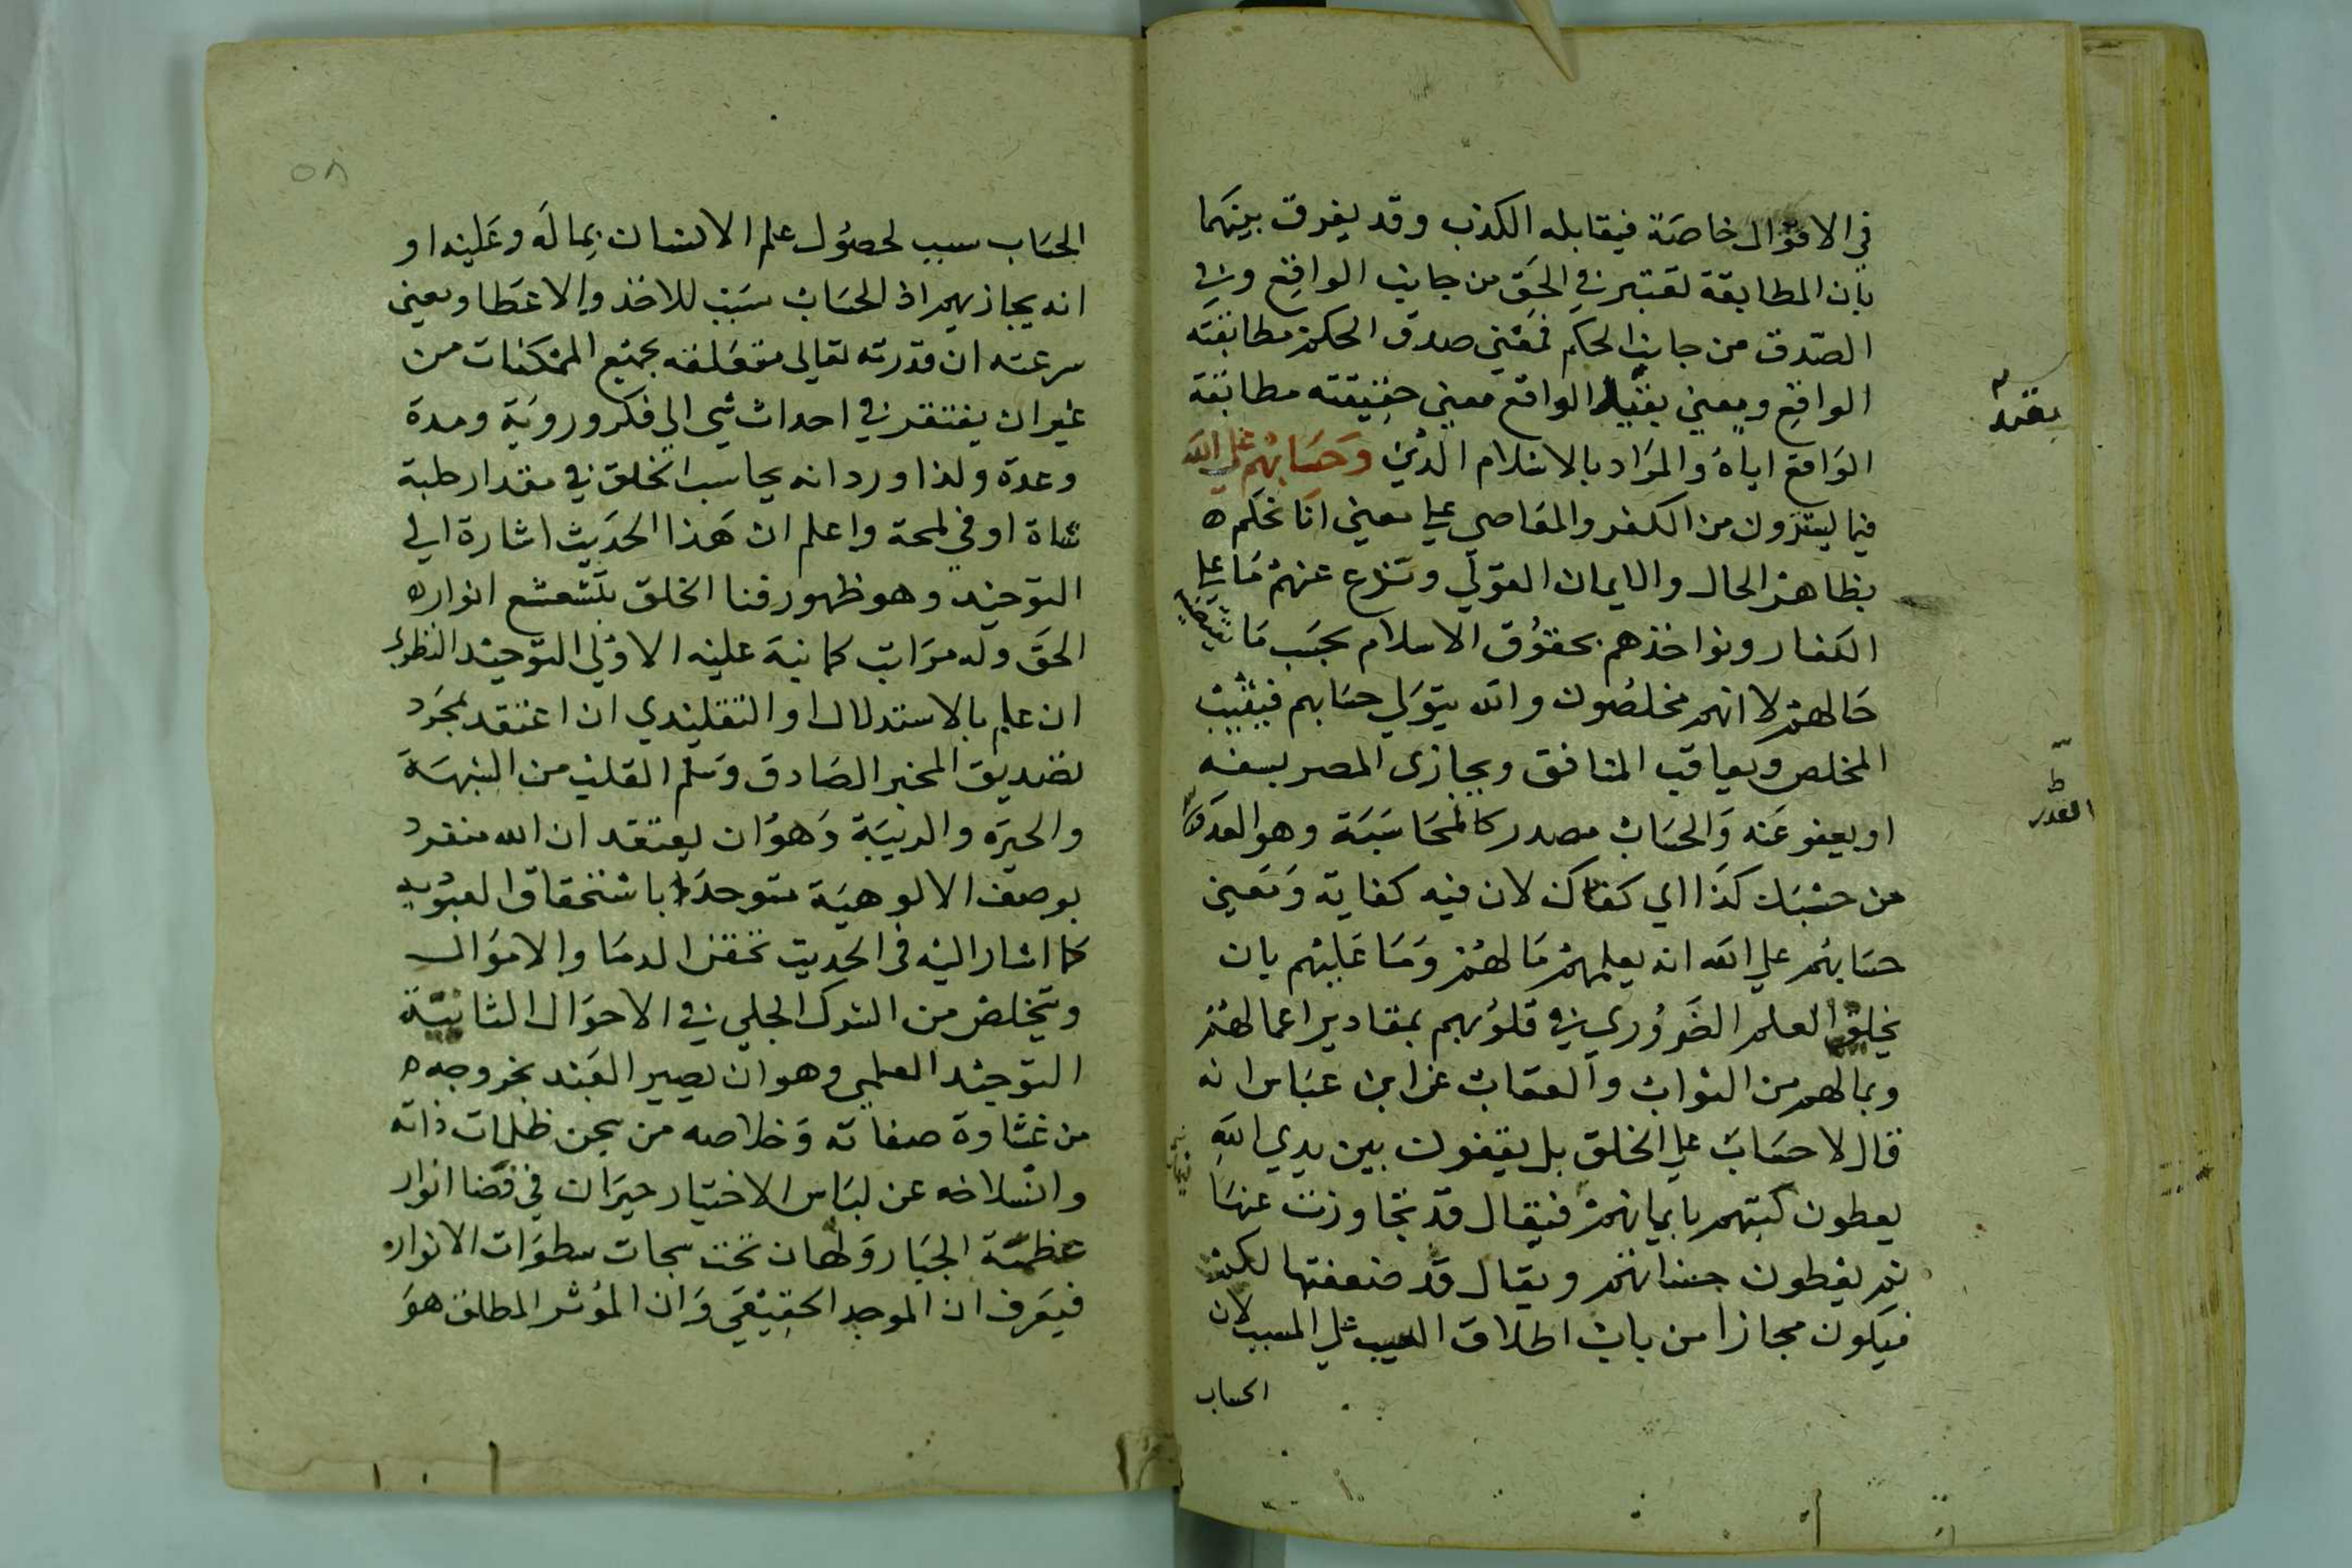 في الاقوال خاصة فيقابله الكذب وقد يفرق بينهما
بان المطابقة تعتبر في الحق من جانب الواقع وفي
الصدق من جانب الحكم فمعنى صدق الحكم مطابقته
الواقع ومعنى الواقع معنى حقيقته مطابقة
الواقع اياه والمراد بالاسلام الذين وحسابهم على الله
فيما يسترون من الكفر والمعاصي على معنى انا نحكم
بظاهر الحال والايمان القولي ونرفع عنهم ما على
الكفار ونواخذهم بحقوق الاسلام بحسب ما تقتضيه
حالهم لا انهم مخلصون والله يتولى حسابهم فيثيب
المخلص ويعاقب المنافق ويجازى المصر بفسقه
او يعفو عنه والحساب مصدر كالمحاسبة وهو العد
من حسبك كذا اي كفاك لان فيه كفاية ومعنى
حسابهم على الله انه يعلمهم ما لهم وما عليهم بان
يخلق العلم الضروري في قلوبهم بمقادير اعمالهم
وبما لهم من الثواب والعقاب عن ابن عباس انه
قال لا حساب على الخلق بل يقفون بين يدي الله
يعطون كتبهم بايمانهم فيقال قد تجاوزت عنها
ثم يعطون حسناتهم ويقال قد ضعفتها لكم
فيكون مجازا من باب اطلاق السبب على المسبب لان
الحساب
القدر
٥٨
الحساب سبب لحصول علم الانسان بما له وعليه او
انه يجازيهم اذ الحساب سبب للاخذ والاعطا ومعنى
سرعته ان قدرته تعالى متعلقه بجميع الممكنات من
غير ان يفتقر في احداث شي الى فكر وروية ومدة
وعدة ولذا ورد انه يحاسب الخلق في مقدار حلبة
شاة او في لمحة واعلم ان هذا الحديث اشارة الى
التوحيد وهو ظهور فنا الخلق بتشعشع انوار
الحق وله مراتب كما نبه عليه الاولى التوحيد النظري
ان علم بالاستدلال او التقليدي ان اعتقد بمجرد
تصديق المخبر الصادق وسلم القلب من الشبهة
والحيرة والريبة وهو ان يعتقد ان الله منفرد
بوصف الالوهية متوحد باستحقاق العبودية
كما اشار اليه في الحديث تحقن الدما والاموال
ويتخلص من الشرك الجلي في الاحوال الثانية
التوحيد العلمي وهو ان يصير العبد بخروجه
من غشاوة صفاته وخلاصه من سجن ظلمات ذاته
وانسلاخه عن لباس الاختيار حيران في فضا انوار
عظمة الجبار ولهان تحت سبحات سطوات الانوار
فيعرف ان الموجد الحقيقي وان المؤثر المطلق هو